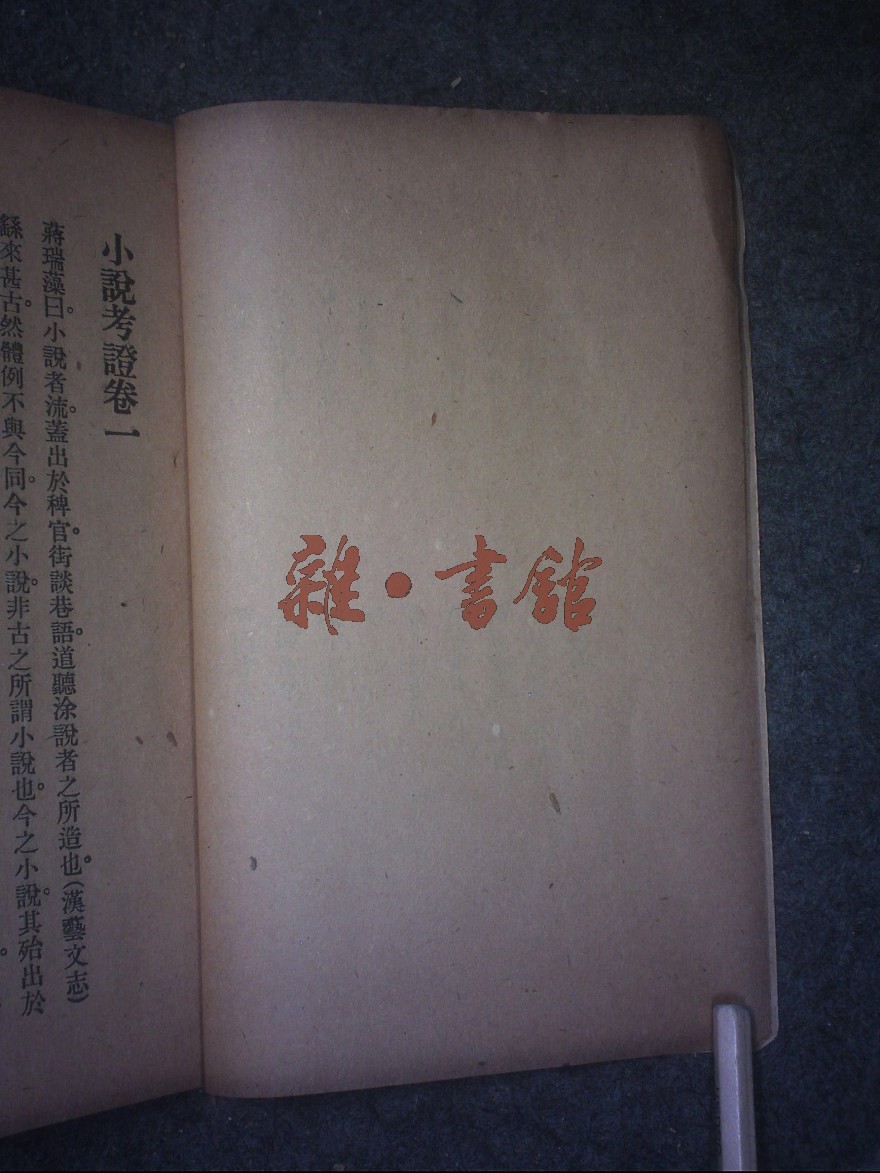 小說考證卷一
蔣瑞藻曰。小說者流。蓋出於稗官。街談巷語。道聽涂說者之所造也。(漢藝文志)
繇來甚古。然體例不與今同。今之小說。非古之所謂小說也。今之小說。其殆出於
雜•書館